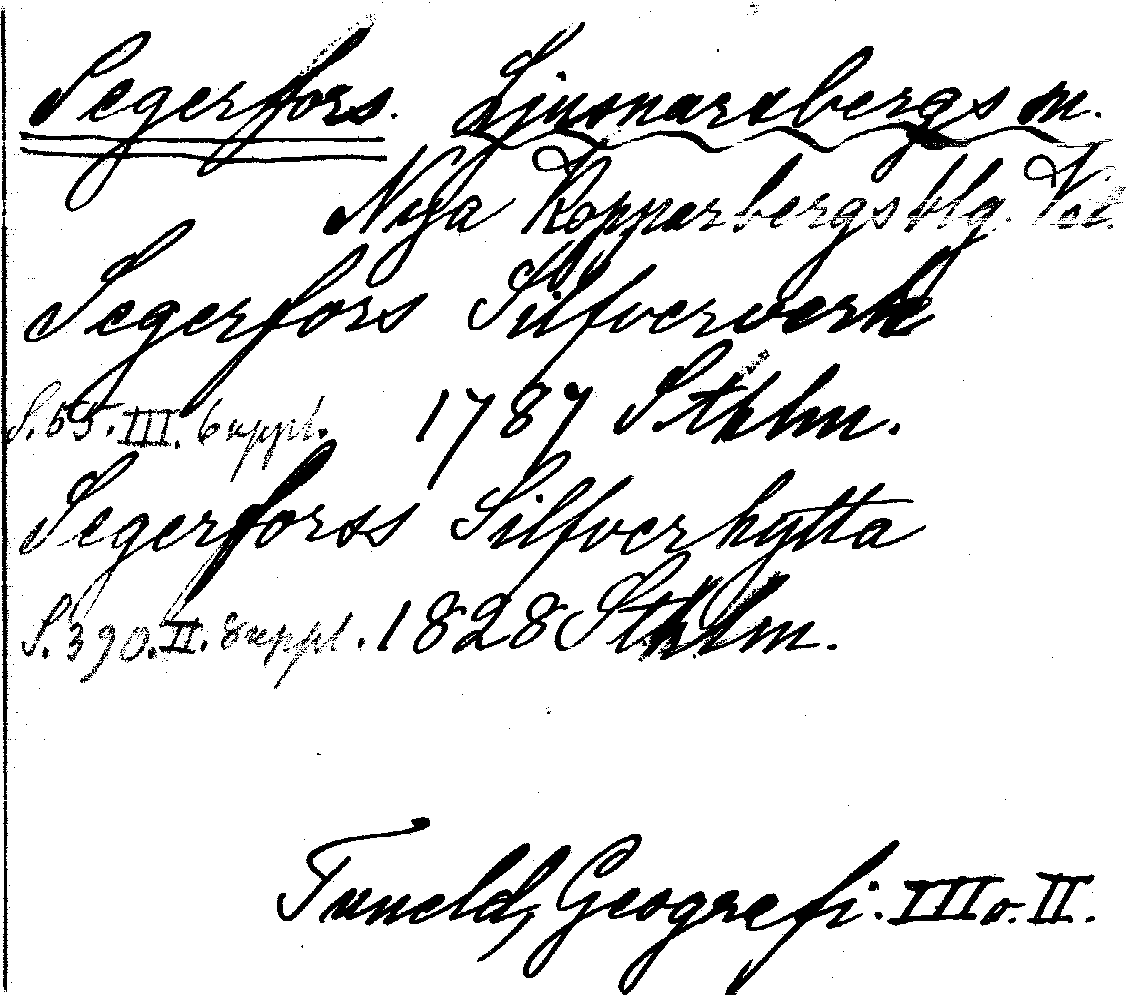 Segerfors. Ljusnarsbergs m.
Nya Kopparbergs blg. Vstl.
Segerfors Silfververk
S. 55. III. Suppl. 1787 Sthlm.
Segerforss Silfverhytta
S. 390. II. Suppl. 1828 Sthlm.
Tuneld, Geografi. III o. II.